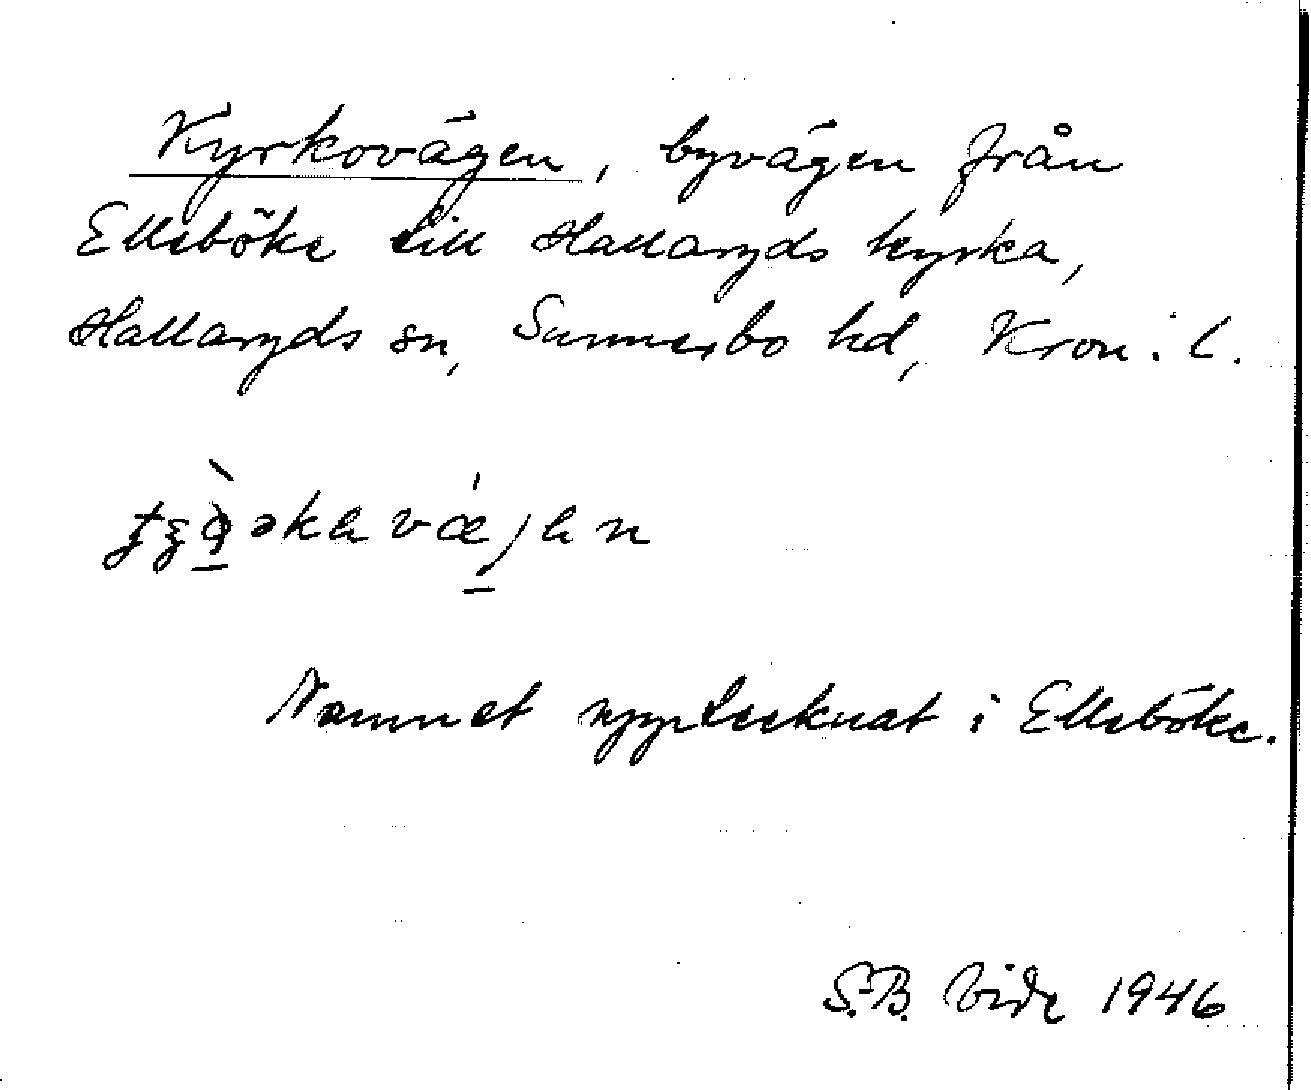 Kyrkovägen, byvägen från
Elleböke till Hallaryds kyrka,
Hallaryds sn, Sunnerbo hd, Kron. l.
Namnet upptecknat i Elleböke.
S.B. Vide 1946